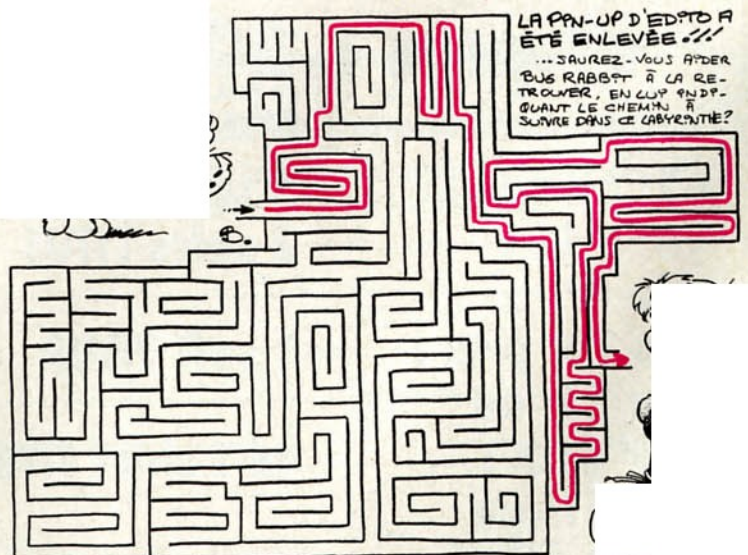 LA PIN-UP D'EDITO A
ÉTÉ ENLEVÉE !!!
...SAUREZ-VOUS AIDER
BUG RABBIT À LA RE-
TROUVER, EN LUI INDI-
QUANT LE CHEMIN À
SUIVRE DANS CE LABYRINTHE?